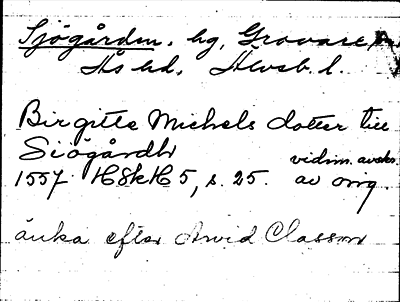 Sjögården, hg, Grovare
Ås hd, Älvsb. l.
Birgitte Michels dotter till
Siögårdh
vidim. avskr.
1557 HSkH 5, s. 25. av orig.
änka efter Arvid Classon